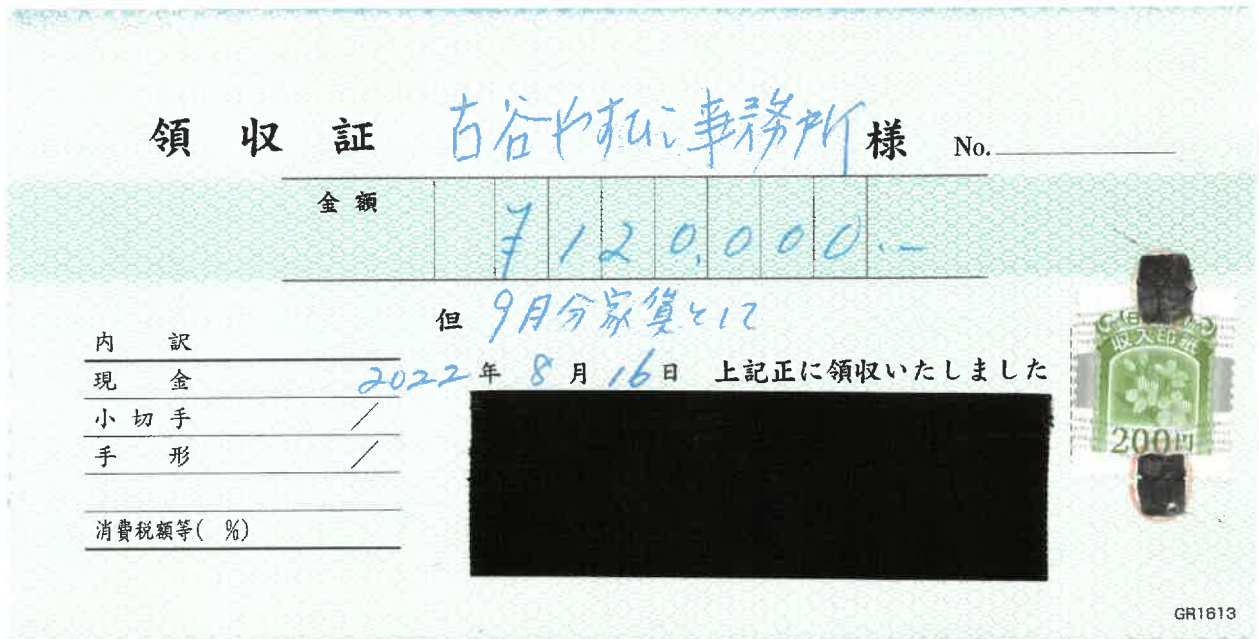 領収証 古谷やすひこ事務所 様 No.
金額 ¥120,000.-
但 9月分家賃として
内訳
現金 2022年8月16日 上記正に領収いたしました
小切手 /
手形 /
消費税額等( %)
収入印紙
200円
GR1613